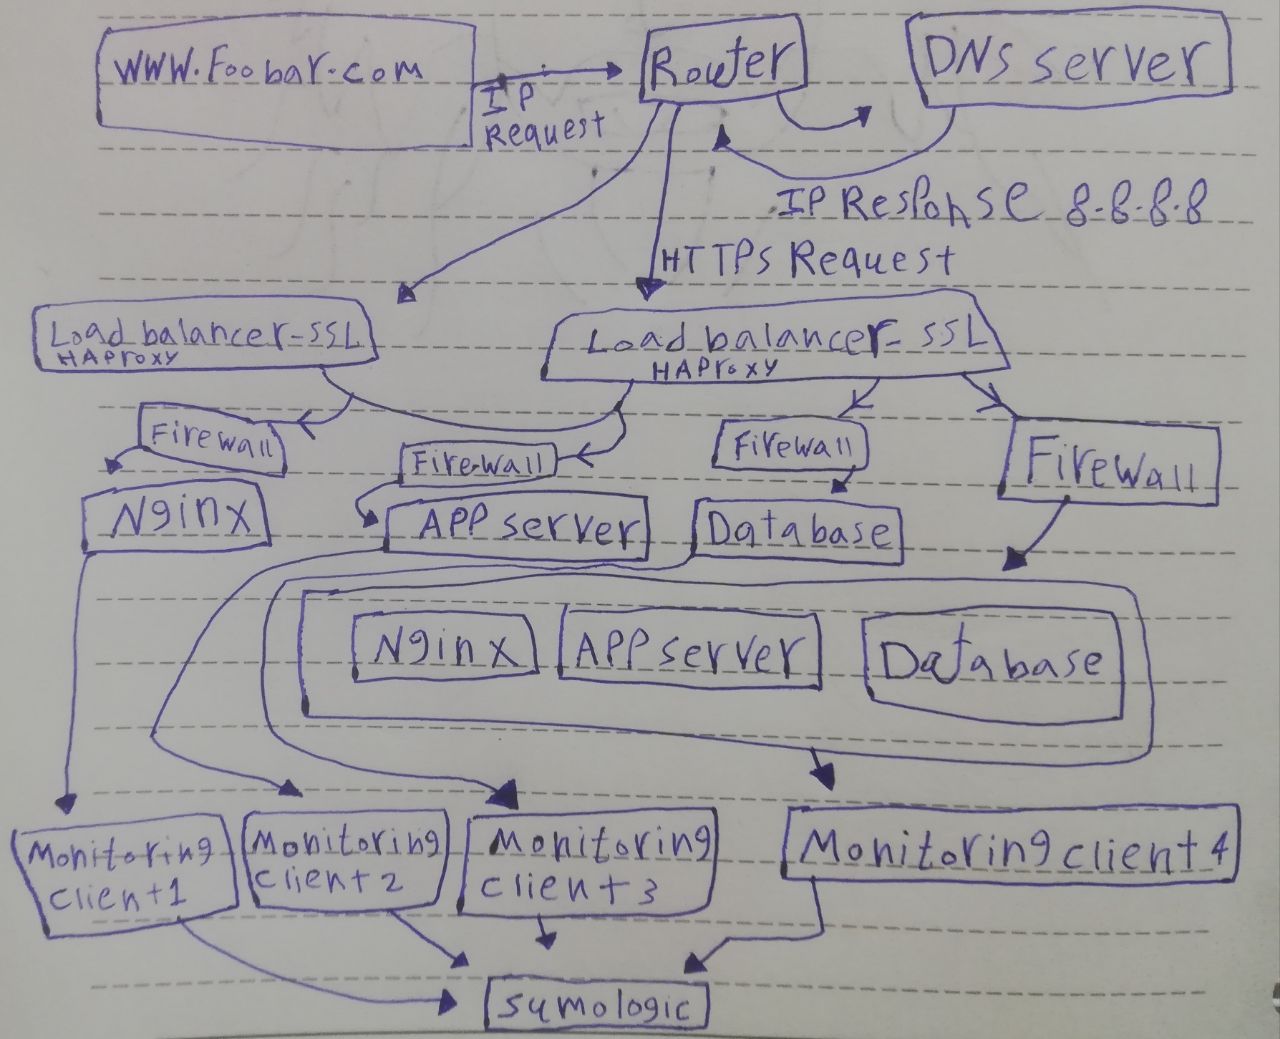 www.Foobar.com
Router
DNS server
IP
Request
IP Response 8.8.8.8
HTTPs Request
Load balancer-SSL
HAProxy
Load balancer-SSL
HAProxy
Firewall
Firewall
Firewall
Firewall
Nginx
APP server
Database
Nginx
APP server
Database
Monitoring
client 1
Monitoring
client 2
Monitoring
client 3
Monitoring client 4
sumologic